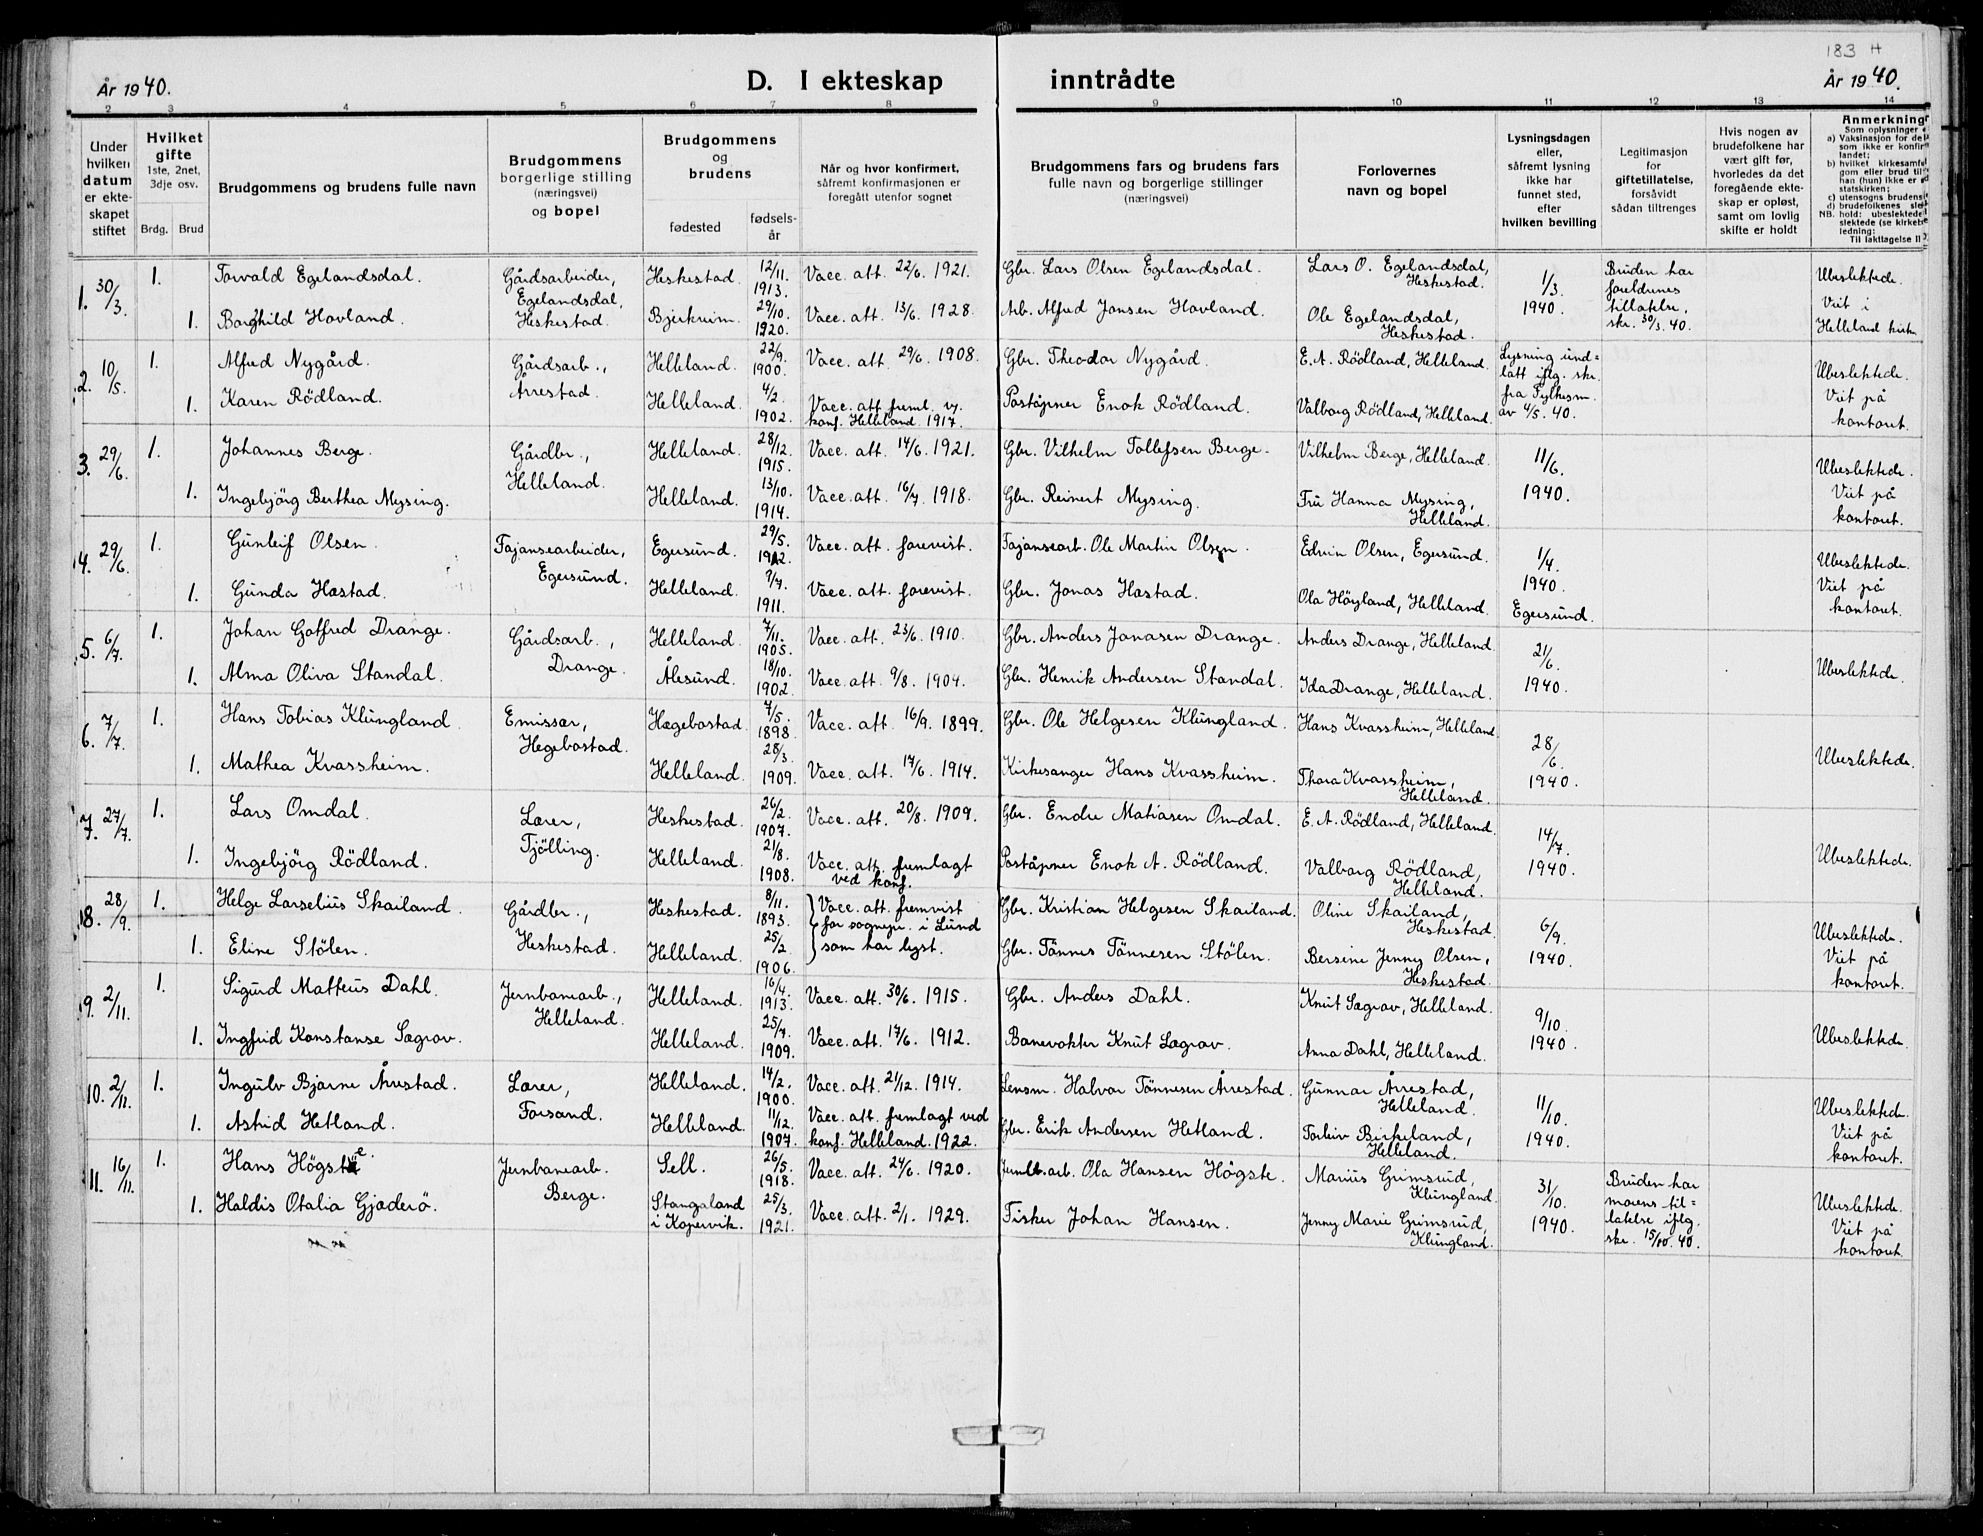 183 H
År 1940.
D. I ekteskap inntrådte
År 1940.
2 3 4 5 6 7 8 9 10 11 12 13 14
Under hvilken datum er ekteskapet stiftet
Hvilket gifte
1ste, 2net, 3dje osv.
Brdg. Brud
Brudgommens og brudens fulle navn
Brudgommens borgerlige stilling (næringsvei) og bopel
Brudgommens og brudens
fødested
fødselsår
Når og hvor konfirmert, såfremt konfirmasjonen er foregått utenfor sognet
Brudgommens fars og brudens fars fulle navn og borgerlige stillinger (næringsvei)
Forlovernes navn og bopel
Lysningsdagen eller, såfremt lysning ikke har funnet sted, efter hvilken bevilling
Legitimasjon for giftetillatelse, forsåvidt sådan tiltrenges
Hvis nogen av brudefolkene har vært gift før, hvorledes da det foregående ekteskap er opløst, samt om lovlig skifte er holdt
Anmerkning
Som oplysninger
a) Vaksinasjon for de
som ikke er konfir
landet;
b) hvilket kirkesamf
gom eller brud til
han (hun) ikke er
statskirken;
c) utensogns brudens
d) brudefolkenes sle
NB. hold: ubeslektede
slektede (se kirkeb
ledning:
Til iakttagelse
1. 30/3 1. Torvald Egelandsdal. Gårdsarbeider, Egelandsdal, Heskestad. Heskestad. 12/11. 1913. Vacc. att. 22/6. 1921. Gbr. Lars Olsen Egelandsdal. Lars O. Egelandsdal, Heskestad. 1/3. 1940. Bruden har foreldrenes tillatelse, skr. 30/3. 40. Ubeslektede. Viet i Helleland
1. Borghild Hovland. Bjerkreim. 29/10. 1920. Vacc. att. 13/6. 1928. Arb. Alfred Jonsen Hovland. Ole Egelandsdal, Heskestad.
2. 10/5. 1. Alfred Nygård. Gårdsarb., Årrestad. Helleland. 22/9. 1900. Vacc. att. 29/6. 1908. Gbr. Theodor Nygård. E. A. Rödland, Helleland. Lysning undlatt iflg. skr. fra Fylkesm. av 4/5. 40. Ubeslektede. Viet på kontoret.
1. Karen Rödland. Helleland. 4/2. 1902. Vacc. att. freml. v. konf. Helleland. 1917. Poståpner Enok Rödland. Valborg Rödland, Helleland.
3. 29/6. 1. Johannes Berge. Gårdbr., Helleland. Helleland. 28/12. 1915. Vacc. att. 14/6. 1921. Gbr. Vilhelm Tollefsen Berge. Vilhelm Berge, Helleland. 11/6. 1940. Ubeslektede. Viet på kontoret.
1. Ingebjörg Berthea Mysing. Helleland. 13/10. 1914. Vacc. att. 16/7. 1918. Gbr. Reinert Mysing. Fru Hanna Mysing, Helleland.
4. 29/6. 1. Gunleif Olsen. Fajansearbeider, Egersund. Egersund. 29/5. 1912. Vacc. att. forevist. Fajansearb. Ole Martin Olsen. Edvin Olsen, Egersund. 1/4. 1940. Egersund. Ubeslektede. Viet på kontoret.
1. Gunda Hæstad. Helleland. 9/7. 1911. Vacc. att. forevist. Gbr. Jonas Hæstad. Ola Höyland, Helleland.
5. 6/7. 1. Johan Gotfred Drange. Gårdsarb., Drange. Helleland. 7/11. 1905. Vacc. att. 23/6. 1910. Gbr. Anders Jonasen Drange. Anders Drange, Helleland. 21/6. 1940. Ubeslektede.
1. Alma Oliva Standal. Ålesund. 18/10. 1902. Vacc. att. 9/8. 1904. Gbr. Henrik Andersen Standal. Ida Drange, Helleland.
6. 7/7. 1. Hans Tobias Klungland. Emissær, Hegebostad. Hægebostad. 7/5. 1898. Vacc. att. 16/9. 1899. Gbr. Ole Helgesen Klungland. Hans Kvassheim, Helleland. 28/6. 1940. Ubeslektede.
1. Mathea Kvassheim. Helleland. 28/3. 1909. Vacc. att. 17/6. 1914. Kirkesanger Hans Kvassheim. Thora Kvassheim, Helleland.
7. 27/7. 1. Lars Omdal. Lærer, Tjölling. Heskestad. 26/2. 1907. Vacc. att. 20/8. 1909. Gbr. Endre Matiasen Omdal. E. A. Rödland, Helleland. 14/7. 1940. Ubeslektede.
1. Ingebjörg Rödland. Helleland. 21/8. 1908. Vacc. att. fremlagt ved konf. Poståpner Enok A. Rödland. Valborg Rödland, Helleland.
8. 28/9. 1. Helge Larselius Skailand. Gårdbr., Heskestad. Heskestad. 8/11. 1893. Vacc. att. fremvist for sognepr. i Lund som har lyst. Gbr. Kristian Helgesen Skailand. Oline Skailand, Heskestad. 6/9. 1940. Ubeslektede. Viet på kontoret.
1. Eline Stölen. Helleland. 25/2. 1906. Gbr. Tönnes Tönnesen Stölen. Bersine Jenny Olsen, Heskestad.
9. 2/11. 1. Sigurd Matteus Dahl. Jernbanearb., Helleland. Helleland. 16/4. 1913. Vacc. att. 30/6. 1915. Gbr. Anders Dahl. Knut Sægrov, Helleland. 9/10. 1940. Ubeslektede.
1. Ingfrid Konstanse Sægrov. Helleland. 25/7. 1909. Vacc. att. 17/6. 1912. Banevokter Knut Sægrov. Anna Dahl, Helleland.
10. 2/11. 1. Ingulv Bjarne Årrestad. Lærer, Forsand. Helleland. 14/2. 1900. Vacc. att. 21/12. 1914. Lensm. Halvor Tönnesen Årrestad. Gunnar Årrestad, Helleland. 11/10. 1940. Ubeslektede. Viet på kontoret.
1. Astrid Hetland. Helleland. 11/12. 1907. Vacc. att. fremlagt ved konf. Helleland. 1922. Gbr. Erik Andersen Hetland. Torleiv Birkeland, Helleland.
11. 16/11. 1. Hans Högste. Jernbanearb. Berge. Sell. 26/5. 1918. Vacc. att. 24/6. 1920. Jernb. arb. Ola Hansen Högste. Marius Grimsrud, Klungland. 31/10. 1940. Bruden har morens tillatelse iflg. skr. 15/10. 40. Ubeslektede. Viet på kontoret.
1. Haldis Otalia Gjæderö. Stangaland i Kopervik. 25/3. 1921. Vacc. att. 2/1. 1929. Fisker Johan Hansen. Jenny Marie Grimsrud, Klungland.